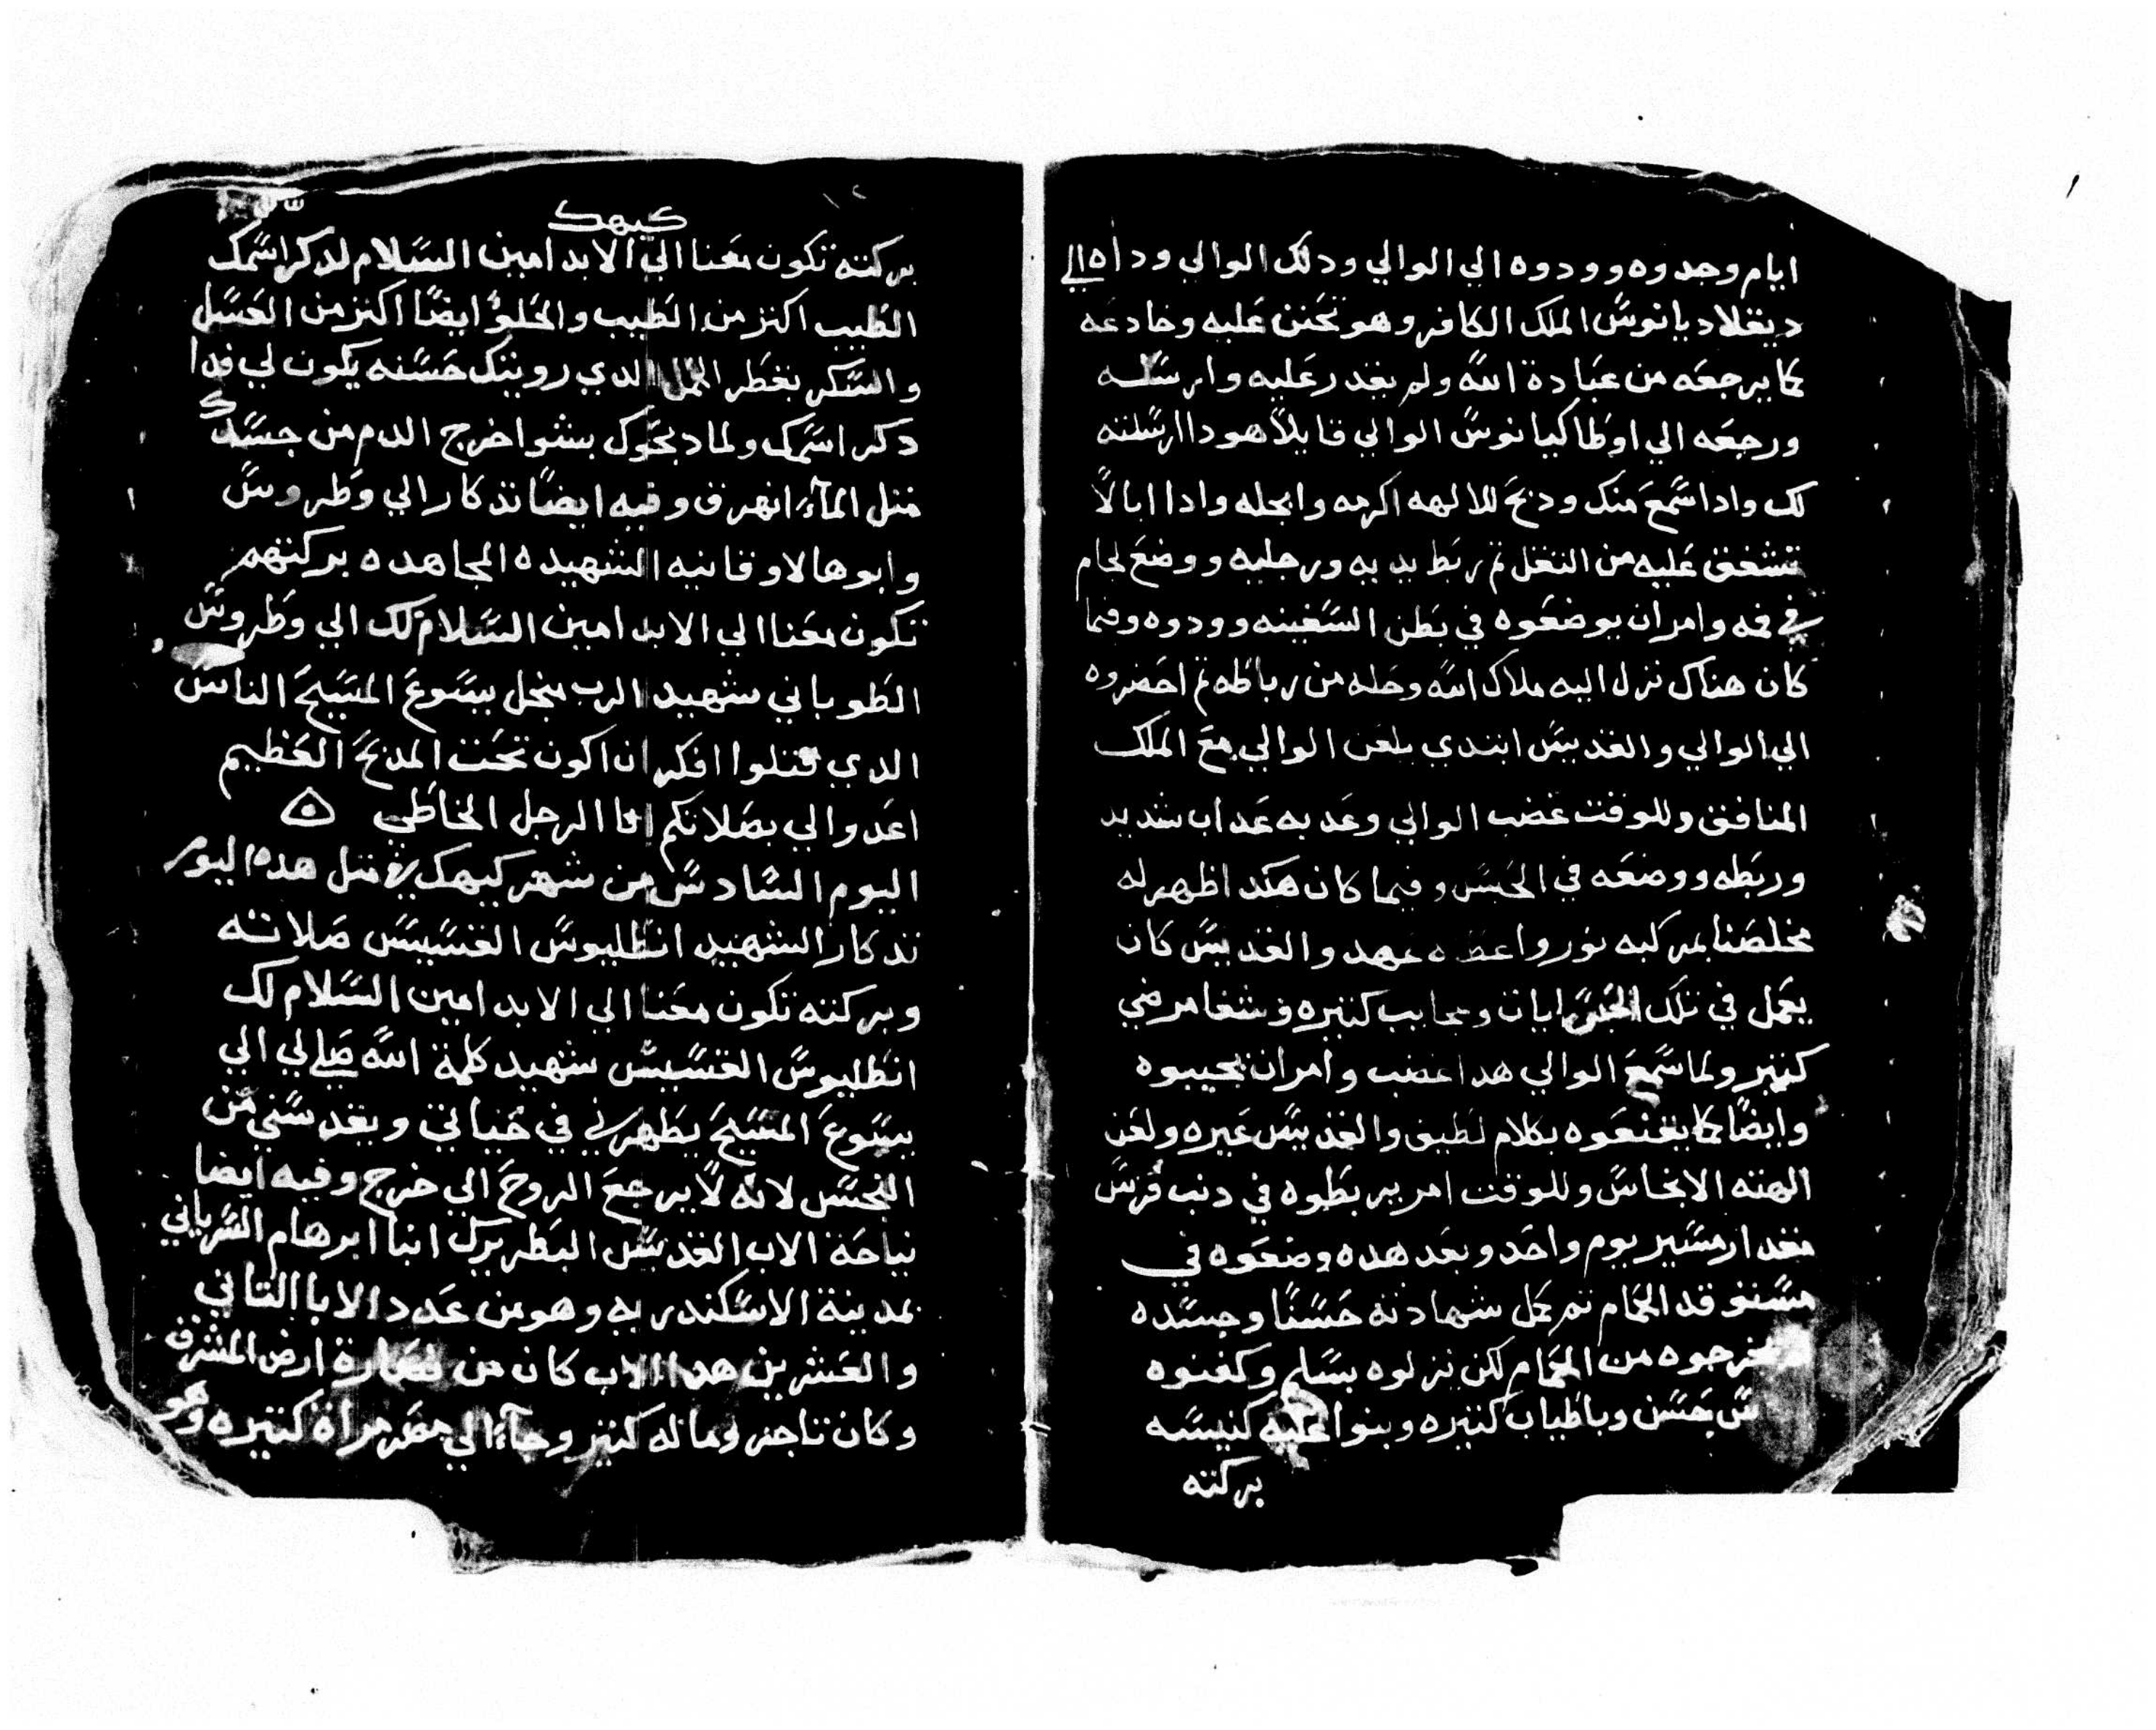 ايام وجدوه وودوه الي الوالي ودلك الوالي وداه الي
ديقلاديانوس الملك الكافر وهو تحنن عليه وخادعه
كما يرجعه من عبادة الله ولم يقدر عليه وارسله
ورجعه الي اوطاكيانوس الوالي قايلا هودا ارسلته
لك وادا سمع منك ودبح للالهه اكرمه وابجله وادا ابا لا
تشفق عليه من القتل تم ربط يديه ورجليه ووضع لجام
في فمه وامر ان يوضعوه في بطن السفينه وودوه وفيما
كان هناك نزل اليه ملاك الله وحله من رباطه تم احضروه
الي الوالي والقديس ابتدي يلعن الوالي مع الملك
المنافق وللوقت غضب الوالي وعدبه عداب شديد
وربطه ووضعه في الحبس وفيما كان هكدا ظهر له
مخلصنا بمركبه نور واعطاه عهد والقديس كان
يعمل في تلك الحبس ايات وعجايب كتيره وشفا مرضي
كتير ولما سمع الوالي هدا غضب وامر ان يجيبوه
وايضا كما يقنعوه بكلام لطيف والقديس عيره ولعن
الهته الانجاس وللوقت امر يربطوه في دنب فرس
مقدار مسير يوم واحد وبعد هده وضعوه في
مستوقد الحمام تم كمل شهادته حسنا وجسده
خرجوه من الحمام لكن نزلوه بسلم وكفنوه
حسن وباطياب كتيره وبنوا عليه كنيسه
بركته
كيهك
بركته تكون معنا الي الابد امين السلام لدكر اسمك
الطيب اكتر من الطيب والحلو ايضا اكتر من العسل
والسكر بقطر النمل الدي رويتك حسنه يكون لي فدا
دكر اسمك ولما دبحوك بستوا خرج الدم من جسدك
متل المآء انهرق وفيه ايضا تدكار الي وطروس
وابوها لاوقانيه الشهيده المجاهده بركتهم
تكون معنا الي الابد امين السلام لك الي وطروس
الطوباني شهيد الرب منجل يسوع المسيح الناس
الدي قتلوا افكر ان اكون تحت المدبح العظيم
اعدوا لي بصلاتكم انا الرجل الخاطي
اليوم السادس من شهر كيهك في متل هده اليوم
تدكار الشهيد انطليوس القسيس صلاته
وبركته تكون معنا الي الابد امين السلام لك
انطليوس القسيس شهيد كلمة الله صلي لي الي
يسوع المسيح يطهرني في حياتي ويقدسني من
النجس لانه لا يرجع الروح الي خرج وفيه ايضا
نياحة الاب القديس البطريرك انبا ابرهام السرياني
بمدينة الاسكندريه وهو من عدد الابا التاني
والعشرين هدا الاب كان من نصارة ارض المشرق
وكان تاجر وماله كتير وجآء الي مصر مراة كتيره وهو